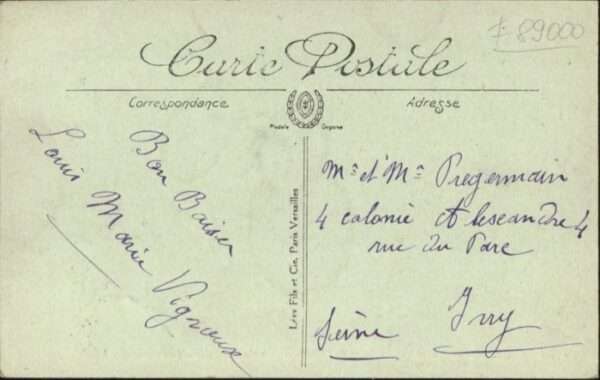 F 89000
Carte Postale
Correspondance
Adresse
Modèle Déposé
Bon Baiser
Louis Marie Vigneux
Lévy Fils et Cie, Paris Versailles
Mr et Mme Pregermain
4 colonie Alescandre 4
rue du Parc
Ivry
Seine